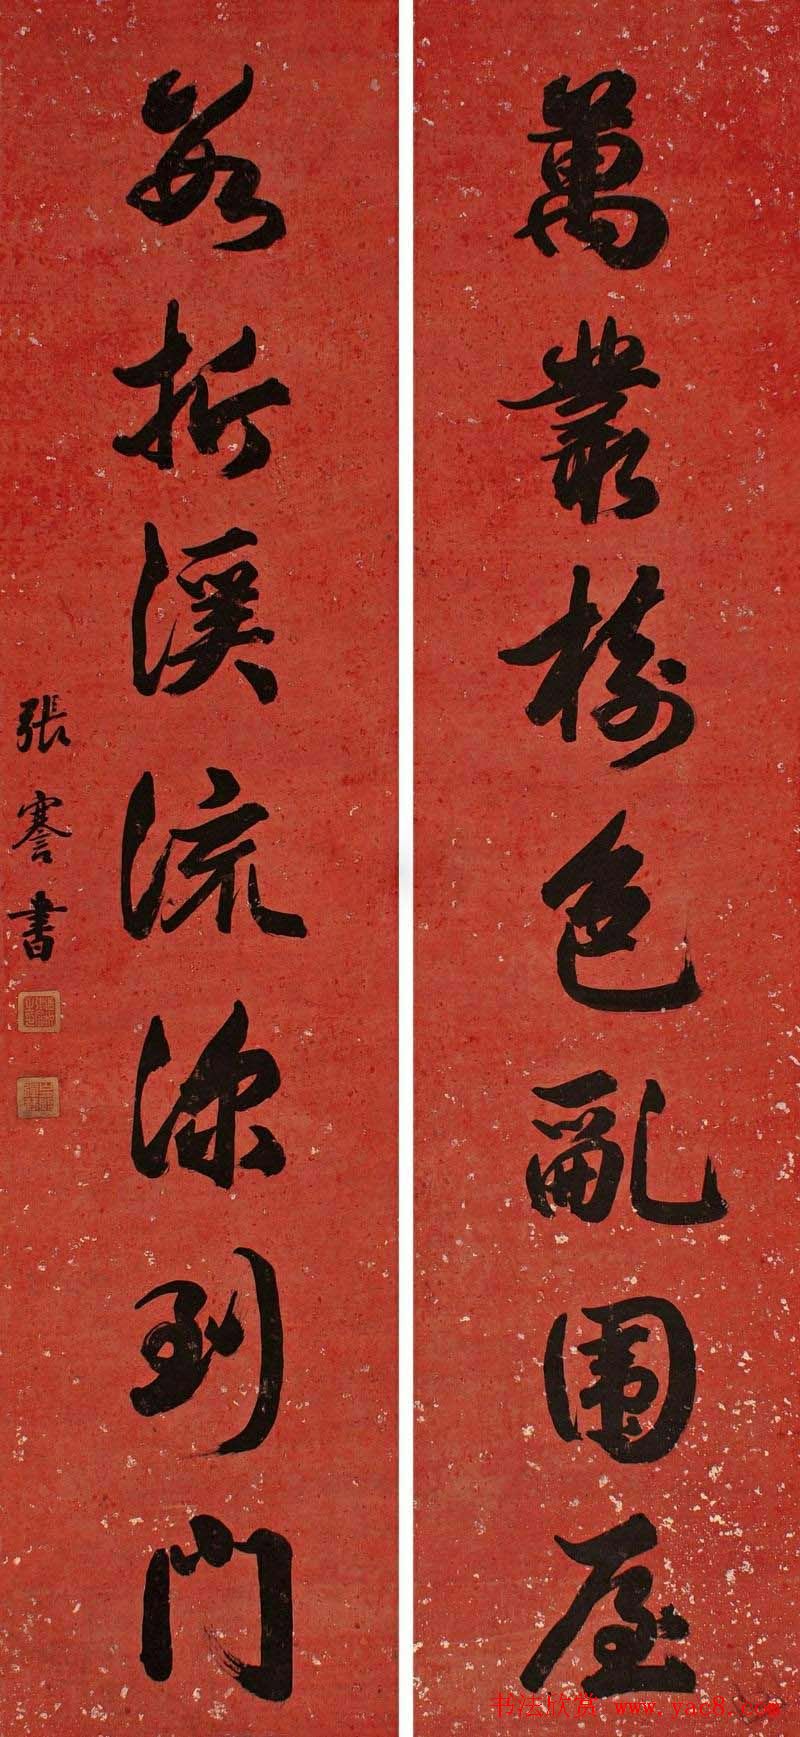 萬叢樹色亂圍屋
數折溪流深到門
張謇書
书法欣赏 www.yac8.com